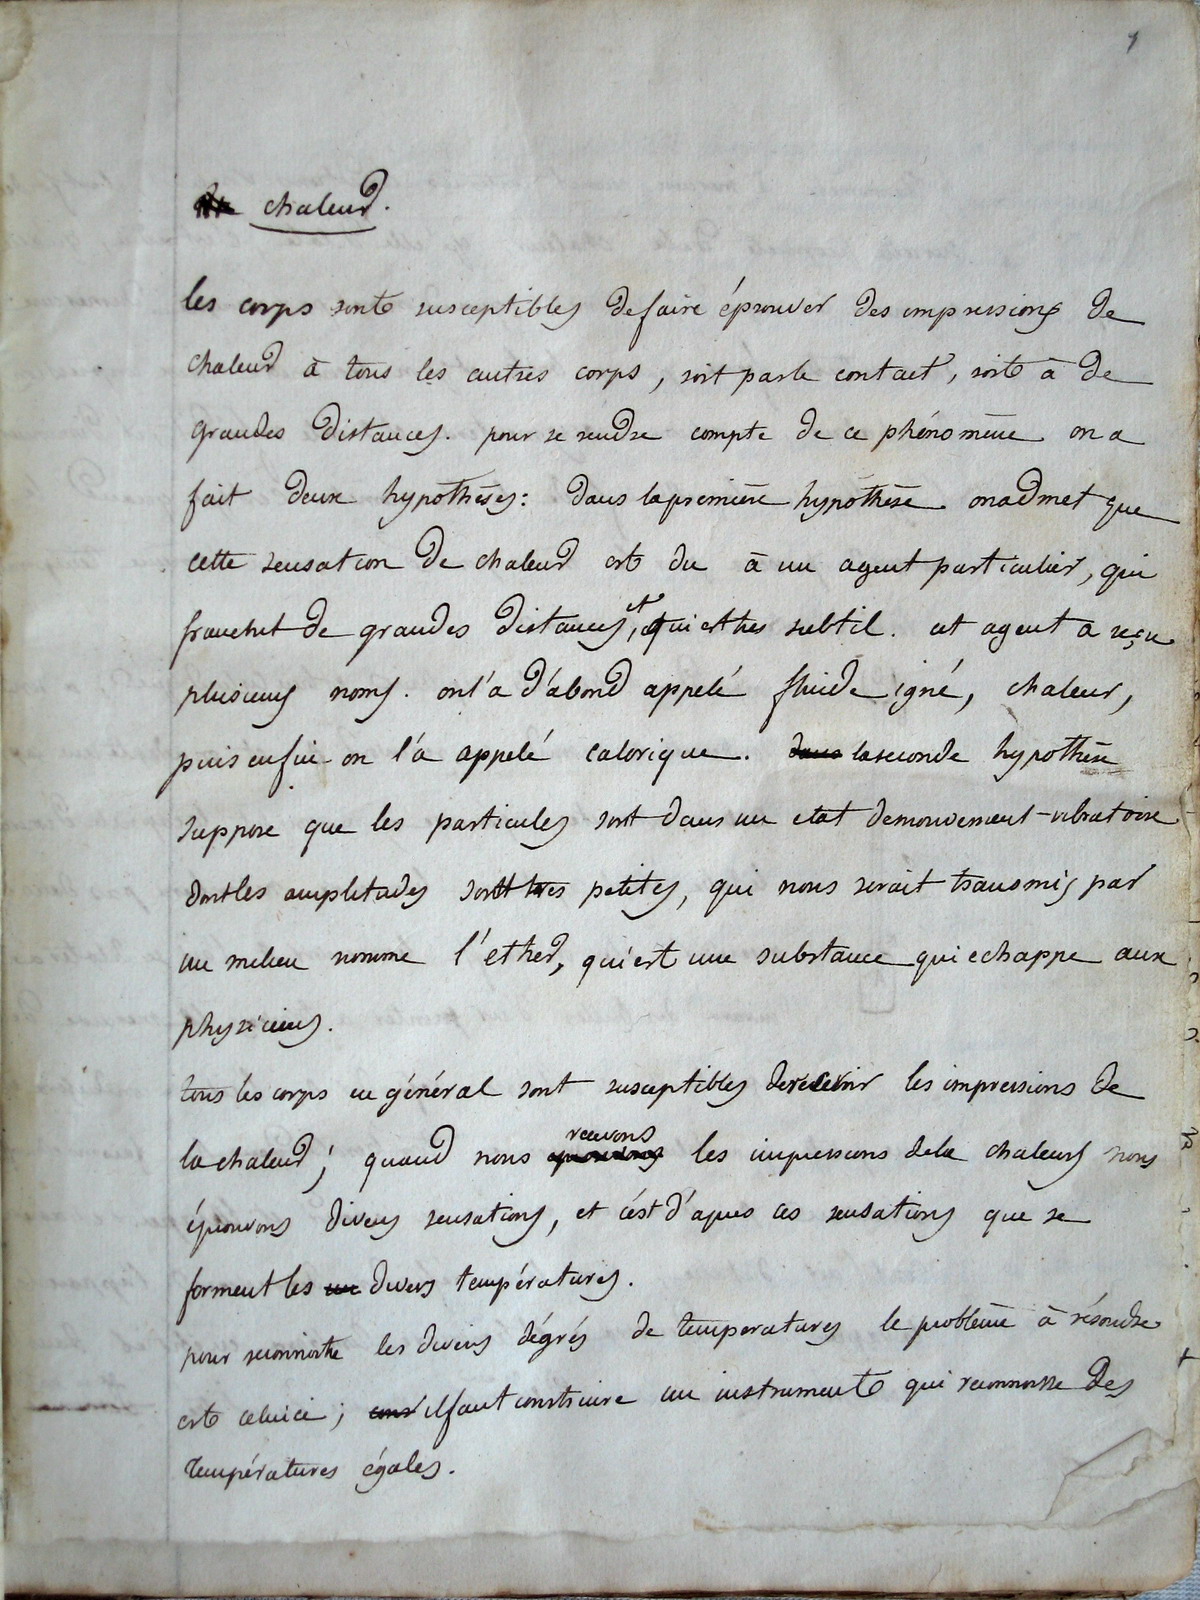 1
chaleur.
les corps sont susceptibles de faire éprouver des impressions de
chaleur à tous les autres corps, soit par le contact, soit à de
grandes distances. pour se rendre compte de ce phénomène on a
fait deux hypothèses: dans la première hypothèse on admet que
cette sensation de chaleur est du à un agent particulier, qui
franchit de grandes distances, et qui est très subtil. cet agent a reçu
plusieurs noms. on l'a d'abord appelé fluide igné, chaleur,
puis enfin on l'a appelé calorique. dans la seconde hypothèse
suppose que les particules sont dans un etat de mouvement-vibratoire
dont les amplitudes sont très petites, qui nous serait transmis par
un milieu nomme l'ether, qui est une substance qui echappe aux
physiciens.
tous les corps en général sont susceptibles de recevoir les impressions de
la chaleur; quand nous recevons les impressions de la chaleur nous
éprouvons divers sensations, et c'est d'apres ces sensations que se
forment les un divers températures.
pour reconnoitre les divers dégrés de temperatures le problème à résoudre
est celui ci; il faut construire un instrument qui reconnoisse des
températures égales.